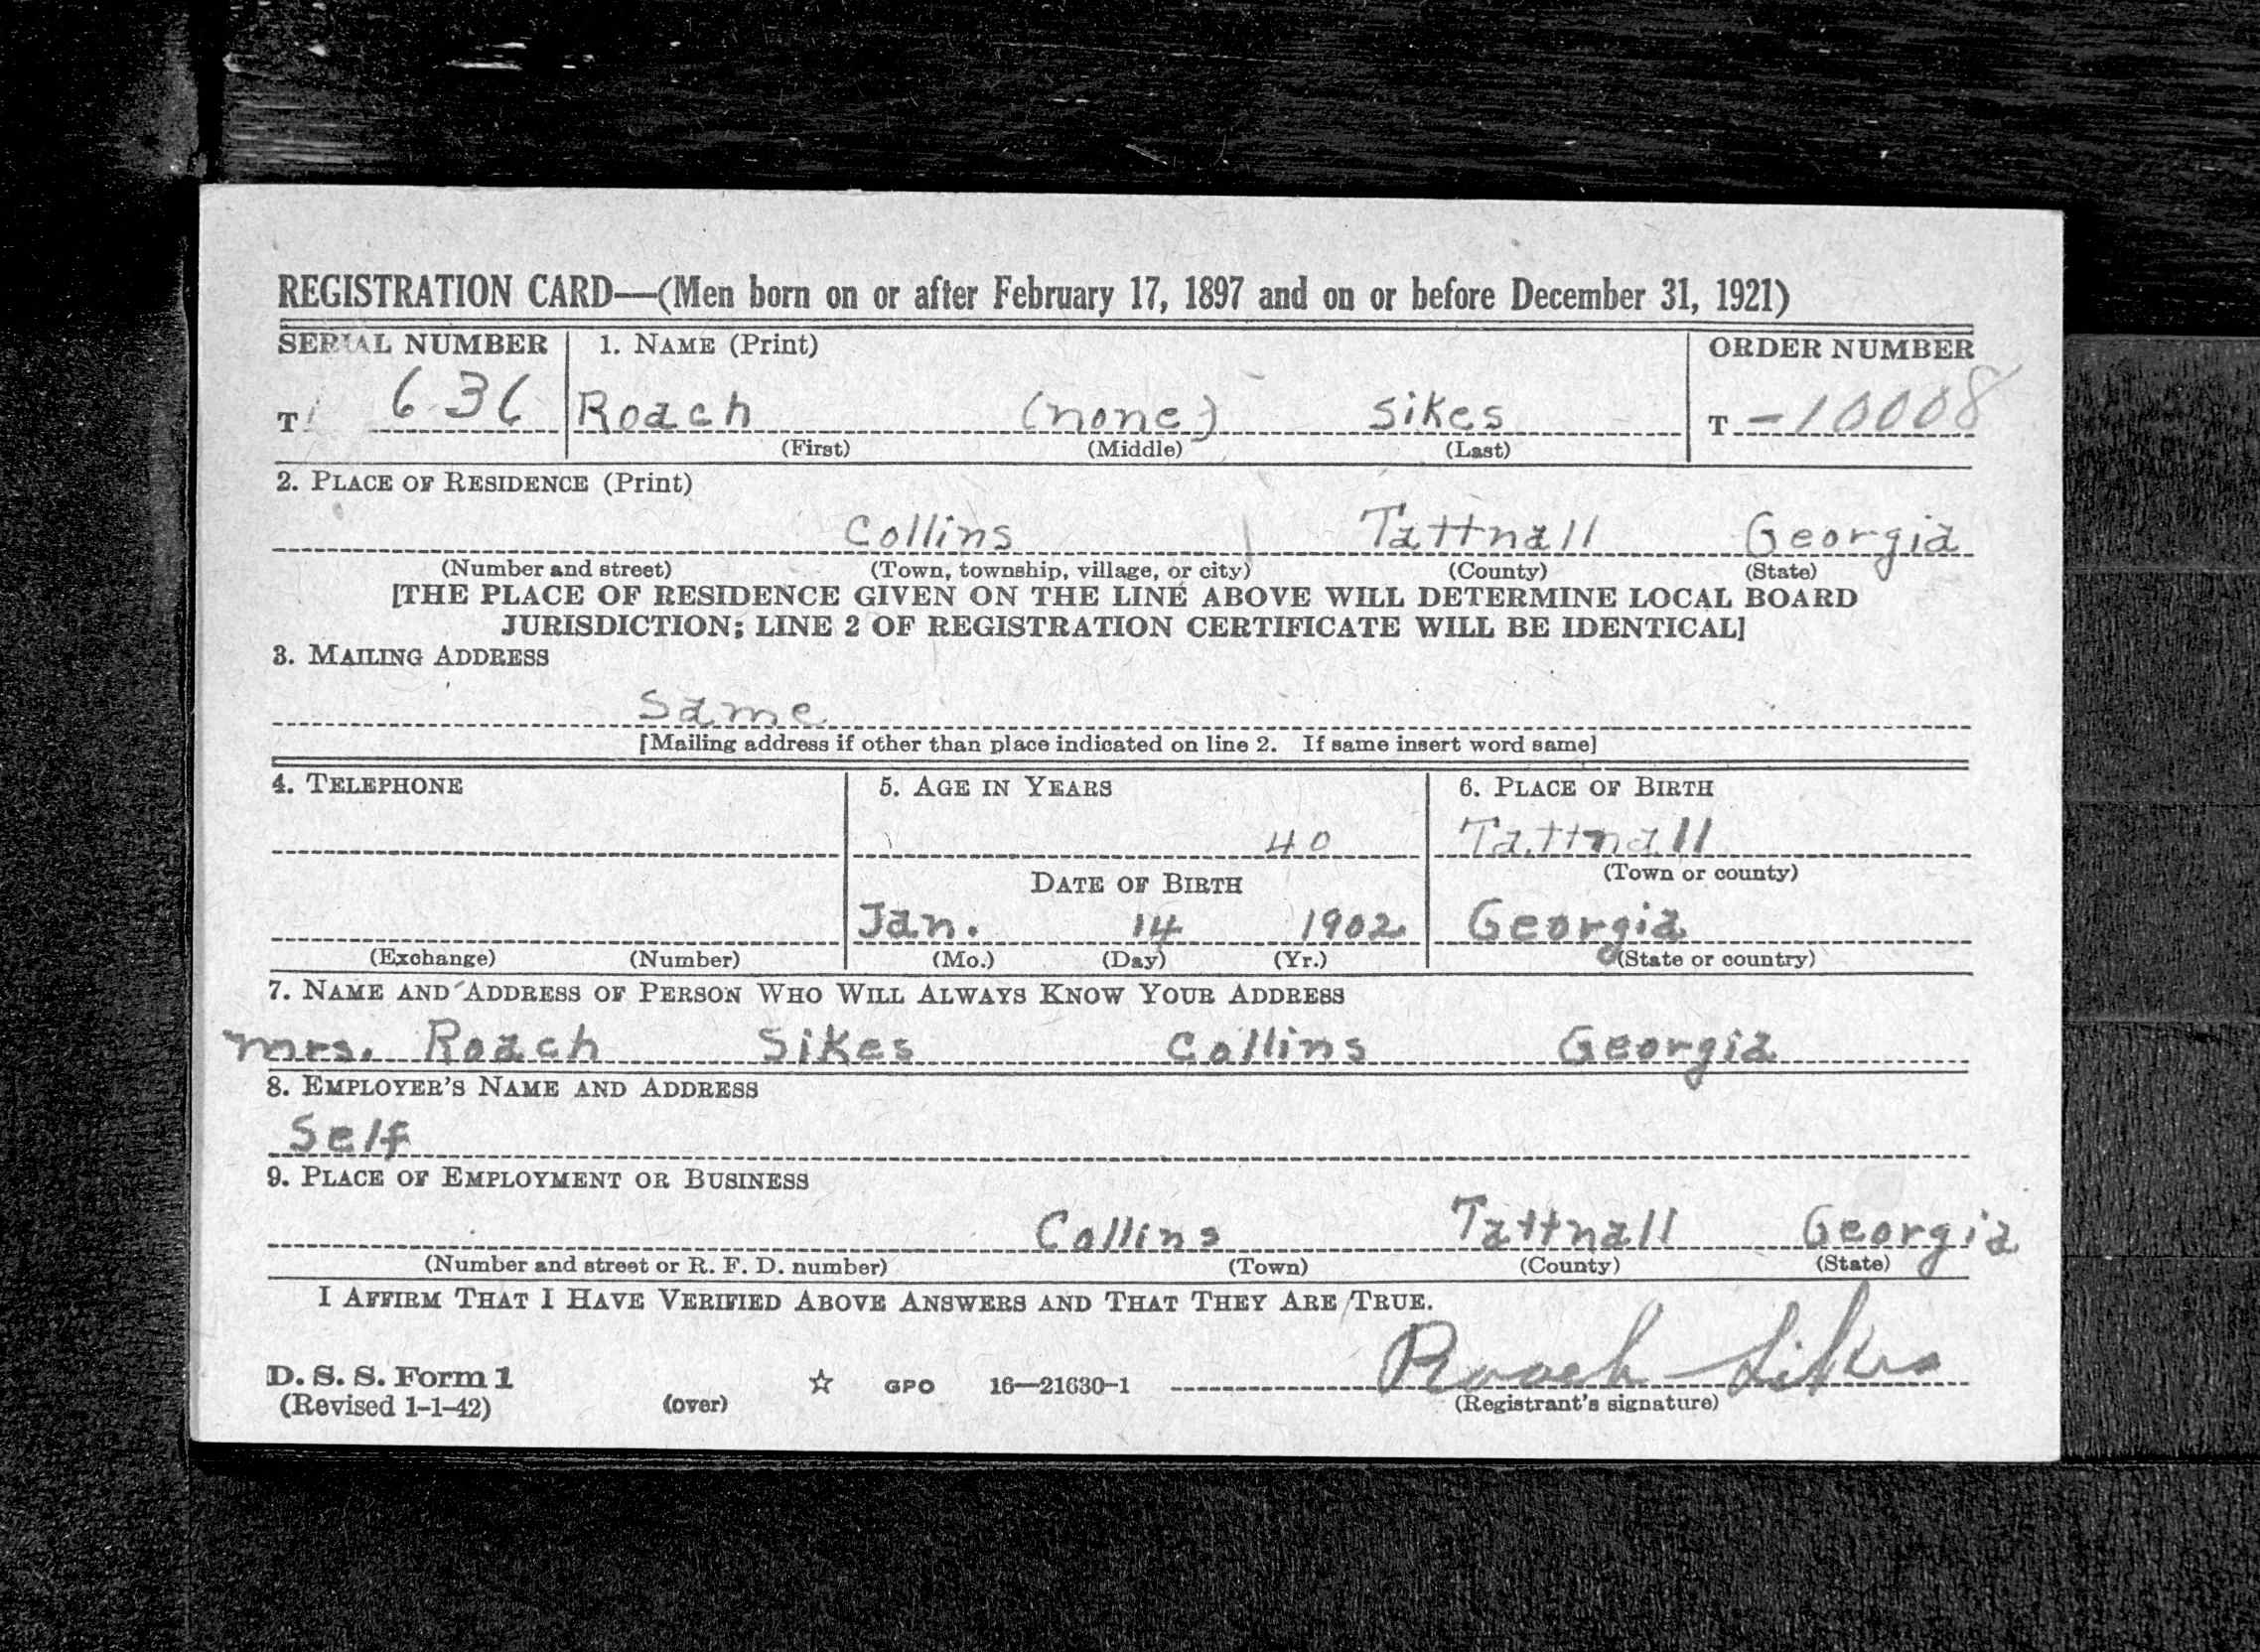 REGISTRATION CARD—(Men born on or after February 17, 1897 and on or before December 31, 1921)
SERIAL NUMBER 1. NAME (Print) ORDER NUMBER
T 636 Roach (none) Sikes T -10008
(First) (Middle) (Last)
2. PLACE OF RESIDENCE (Print)
Collins Tattnall Georgia
(Number and street) (Town, township, village, or city) (County) (State)
[THE PLACE OF RESIDENCE GIVEN ON THE LINE ABOVE WILL DETERMINE LOCAL BOARD
JURISDICTION; LINE 2 OF REGISTRATION CERTIFICATE WILL BE IDENTICAL]
3. MAILING ADDRESS
Same
[Mailing address if other than place indicated on line 2. If same insert word same]
4. TELEPHONE 5. AGE IN YEARS 6. PLACE OF BIRTH
40 Tattnall
DATE OF BIRTH (Town or county)
Jan. 14 1902 Georgia
(Exchange) (Number) (Mo.) (Day) (Yr.) (State or country)
7. NAME AND ADDRESS OF PERSON WHO WILL ALWAYS KNOW YOUR ADDRESS
Mrs. Roach Sikes Collins Georgia
8. EMPLOYER'S NAME AND ADDRESS
Self
9. PLACE OF EMPLOYMENT OR BUSINESS
Collins Tattnall Georgia
(Number and street or R. F. D. number) (Town) (County) (State)
I AFFIRM THAT I HAVE VERIFIED ABOVE ANSWERS AND THAT THEY ARE TRUE.
Roach Sikes
D. S. S. Form 1
(Revised 1-1-42) (over) ☆ GPO 16—21630-1 (Registrant's signature)